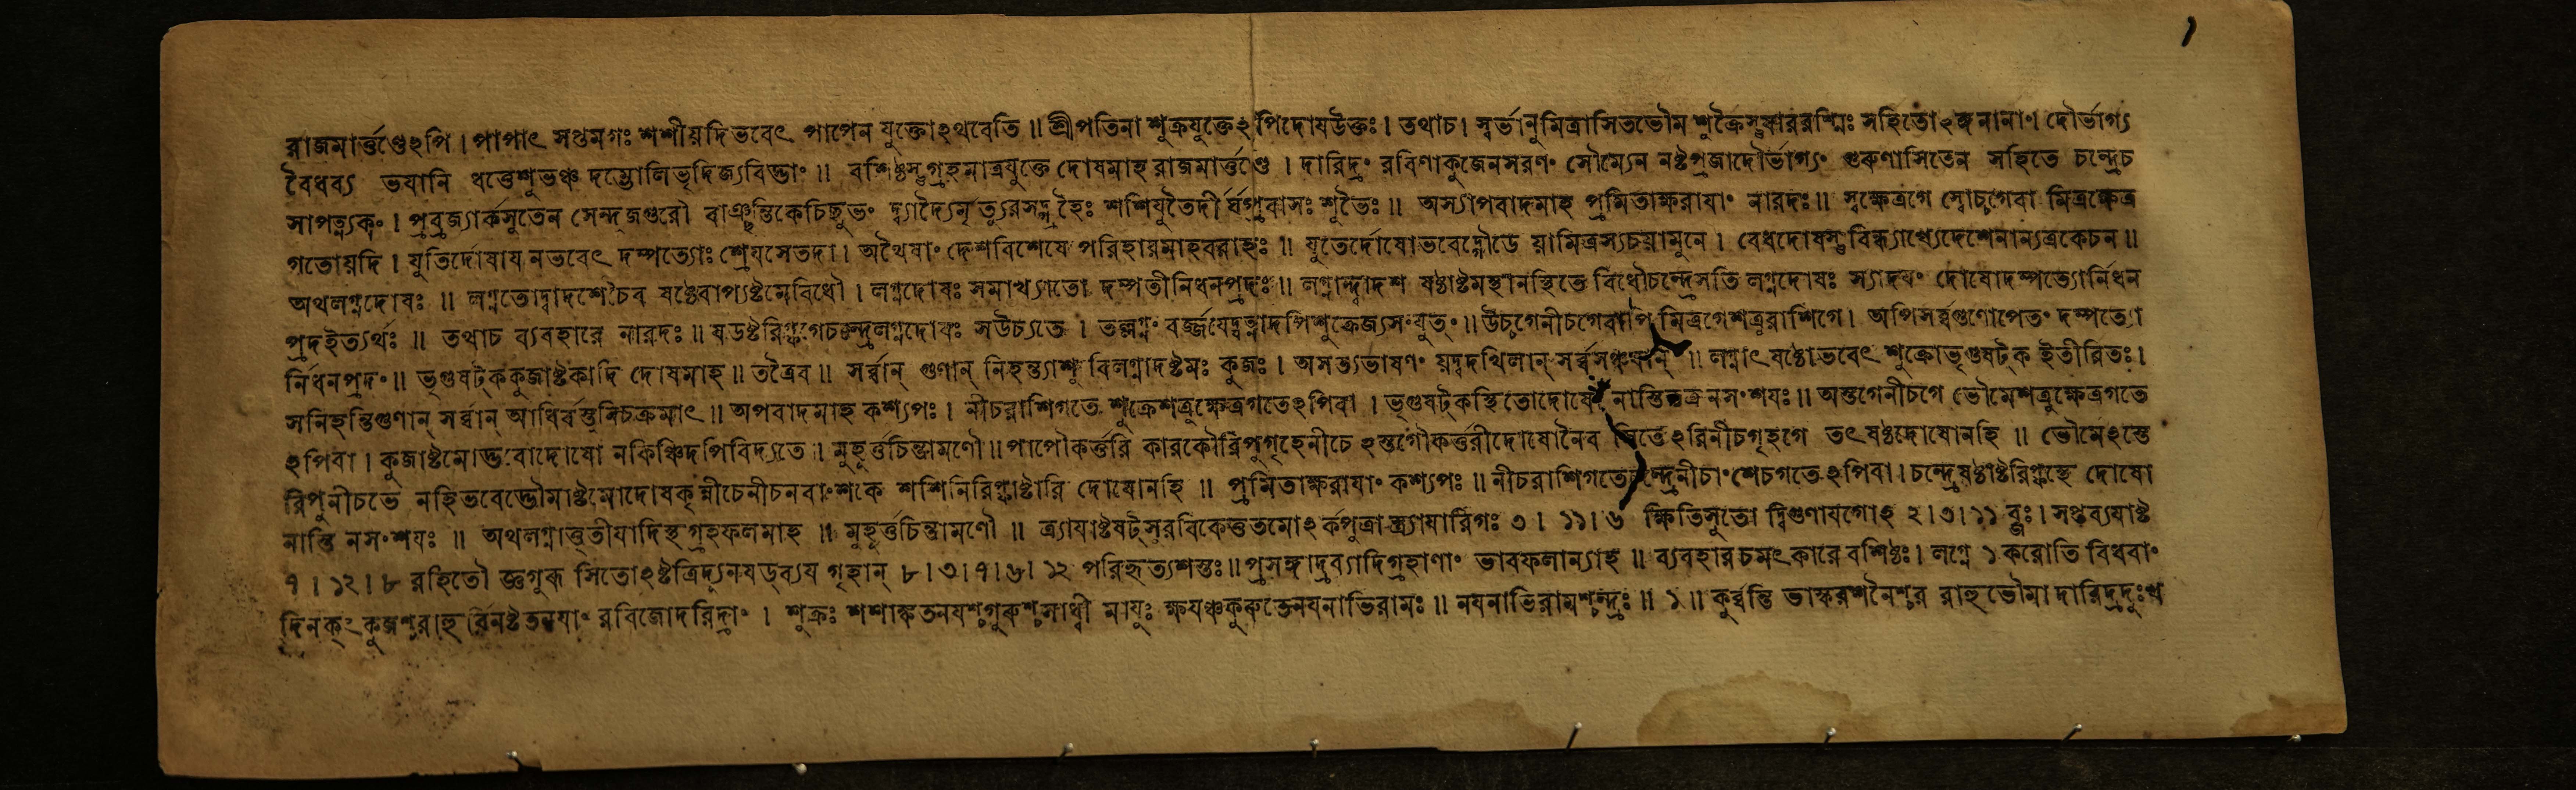 ১
রাজমার্ত্তণ্ডেঽপি । পাপাৎ সপ্তমগঃ শশীয়দিভবেৎ পাপেন যুক্তোঽথবেতি ॥ শ্রীপতিনা শুক্রযুক্তেঽপিদোষউক্তঃ । তথাচ । স্বর্ভানুমিত্রাসিতভৌম শুক্রৈস্তুষাররশ্মিঃ সহিতোঽঙ্গনানাং দৌর্ভাগ্য
বৈধব্য ভয়ানি ধত্তেশুভঞ্চ দম্ভোলিভৃদিজ্যবিদ্ভাং ॥ বশিষ্ঠস্তুগ্রহমাত্রযুক্তে দোষমাহ রাজমার্ত্তণ্ডে । দারিদ্রং রবিণাকুজেনমরণং সৌম্যেন নষ্টপ্রজাদৌর্ভাগ্যং গুরুণাসিতেন সহিতে চন্দ্রেচ
সাপত্ন্যকং । প্রব্রজ্যার্কসুতেন সেন্দুজগুরৌ বাঞ্ছন্তিকেচিছুভং দ্ব্যাদ্যৈর্মৃত্যুরসদ্গ্রহৈঃ শশিযুতৈর্দীর্ঘপ্রবাসঃ শুভৈঃ ॥ অস্যাপবাদমাহ প্রমিতাক্ষরায়াং নারদঃ ॥ স্বক্ষেত্রগে স্বোচ্চগেবা মিত্রক্ষেত্র
গতোয়দি । যুতির্দোষায় নভবেৎ দম্পত্যোঃ শ্রেয়সেতদা । অথৈষাং দেশবিশেষে পরিহারমাহবরাহঃ ॥ যুতের্দোষোভবেদ্গৌডে য়ামিত্রস্যচয়ামুনে । বেধদোষস্তুবিন্ধ্যাখ্যেদেশেনান্যত্রকেচন ॥
অথলগ্নদোষঃ ॥ লগ্নতোদ্বাদশেচৈব ষষ্ঠেবাপ্যষ্টমেবিধৌ । লগ্নদোষঃ সমাখ্যাতো দম্পতীনিধনপ্রদঃ ॥ লগ্নাদ্দ্বাদশ ষষ্ঠাষ্টমস্থানস্থিতে বিধৌচন্দ্রেসতি লগ্নদোষঃ স্যাদয়ং দোষোদম্পত্যোর্নিধন
প্রদইত্যর্থঃ ॥ তথাচ ব্যবহারে নারদঃ ॥ ষডষ্টরিপ্ফগেচন্দ্রেলগ্নদোষঃ সউচ্যতে । তল্লগ্নং বর্জ্জয়েদ্যত্নাদপিশুক্রেজ্যসংযুতং ॥ উচ্চগেনীচগেবাপি মিত্রগেশত্রুরাশিগে । অপিসর্ব্বগুণোপেতং দম্পত্যো
র্নিধনপ্রদং ॥ ভৃগুষট্ককুজাষ্টকাদি দোষমাহ ॥ তত্রৈব ॥ সর্ব্বান্ গুণান্ নিহন্ত্যাশু বিলগ্নাদষ্টমঃ কুজঃ । অসত্যভাষণং য়দ্বদখিলান্ সর্ব্বসঞ্চয়ান্ ॥ লগ্নাৎষষ্ঠোভবেৎ শুক্রোভৃগুষট্ক ইতীরিতঃ ।
সনিহন্তিগুণান্ সর্ব্বান্ আধির্বস্তুবিচক্রমাৎ ॥ অপবাদমাহ কশ্যপঃ । নীচরাশিগতে শুক্রেশত্রুক্ষেত্রগতেঽপিবা । ভৃগুষট্কস্থিতোদোষো নাস্তিতত্রনসংশয়ঃ ॥ অস্তগেনীচগে ভৌমেশত্রুক্ষেত্রগতে
ঽপিবা । কুজাষ্টমোদ্ভবোদোষো নকিঞ্চিদপিবিদ্যতে ॥ মুহূর্ত্তচিন্তামণৌ ॥ পাপৌকর্ত্তরি কারকৌরিপুগৃহেনীচে ঽস্তগৌকর্ত্তরীদোষোনৈব সিতেঽরিনীচগৃহগে তৎষষ্ঠদোষোনহি ॥ ভৌমেঽস্তে
রিপুনীচভে নহিভবেদ্ভৌমাষ্টমোদোষকৃন্নীচেনীচনবাংশকে শশিনিরিপ্ফাষ্টারি দোষোনহি ॥ প্রমিতাক্ষরায়াং কশ্যপঃ ॥ নীচরাশিগতেচন্দ্রেনীচাংশেচগতেঽপিবা । চন্দ্রেষষ্ঠাষ্টরিপ্ফস্থে দোষো
নাস্তি নসংশয়ঃ ॥ অথলগ্নাত্তৃতীয়াদিস্থ গ্রহফলমাহ ॥ মুহূর্ত্তচিন্তামণৌ ॥ ত্র্যায়াষ্টষট্সুরবিকেতুতমোঽর্কপুত্রা স্ত্র্যায়ারিগঃ ৩ । ১১ । ৬ ক্ষিতিসুতো দ্বিগুণায়গোঽ ২ । ৩ । ১১ ব্জঃ । সপ্তব্যয়াষ্ট
৭ । ১২ । ৮ রহিতৌ জ্ঞগুরূ সিতোঽষ্টত্রিদ্যূনষড্ব্যয় গৃহান্ ৮ । ৩ । ৭ । ৬ । ১২ পরিহৃত্যশস্তঃ ॥ প্রসঙ্গাদ্রব্যাদিগ্রহাণাং ভাবফলান্যাহ ॥ ব্যবহারচমৎকারে বশিষ্ঠঃ । লগ্নে ১ করোতি বিধবাং
দিনকৃৎ কুজশ্চরাহু র্বিনষ্টতনয়াং রবিজোদরিদ্রাং । শুক্রঃ শশাঙ্কতনয়শ্চগুরুশ্চসাধ্বী মায়ুঃ ক্ষয়ঞ্চকুরুতেনয়নাভিরামঃ ॥ নয়নাভিরামশ্চন্দ্রঃ ॥ ১ ॥ কুর্ব্বন্তি ভাস্করশনৈশ্চর রাহুভৌমা দারিদ্রদুঃখ